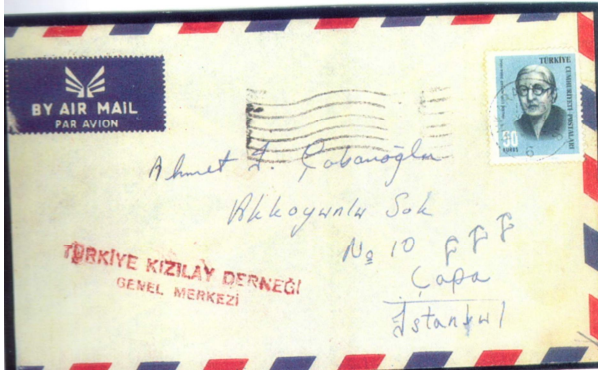 BY AIR MAIL
PAR AVION
TÜRKİYE
CUMHURİYETİ POSTALARI
KURUŞ
Ahmet I. Çobanoğlu
Akkoyunlu Sok
No 10
Çapa
İstanbul
TÜRKİYE KIZILAY DERNEĞİ
GENEL MERKEZİ